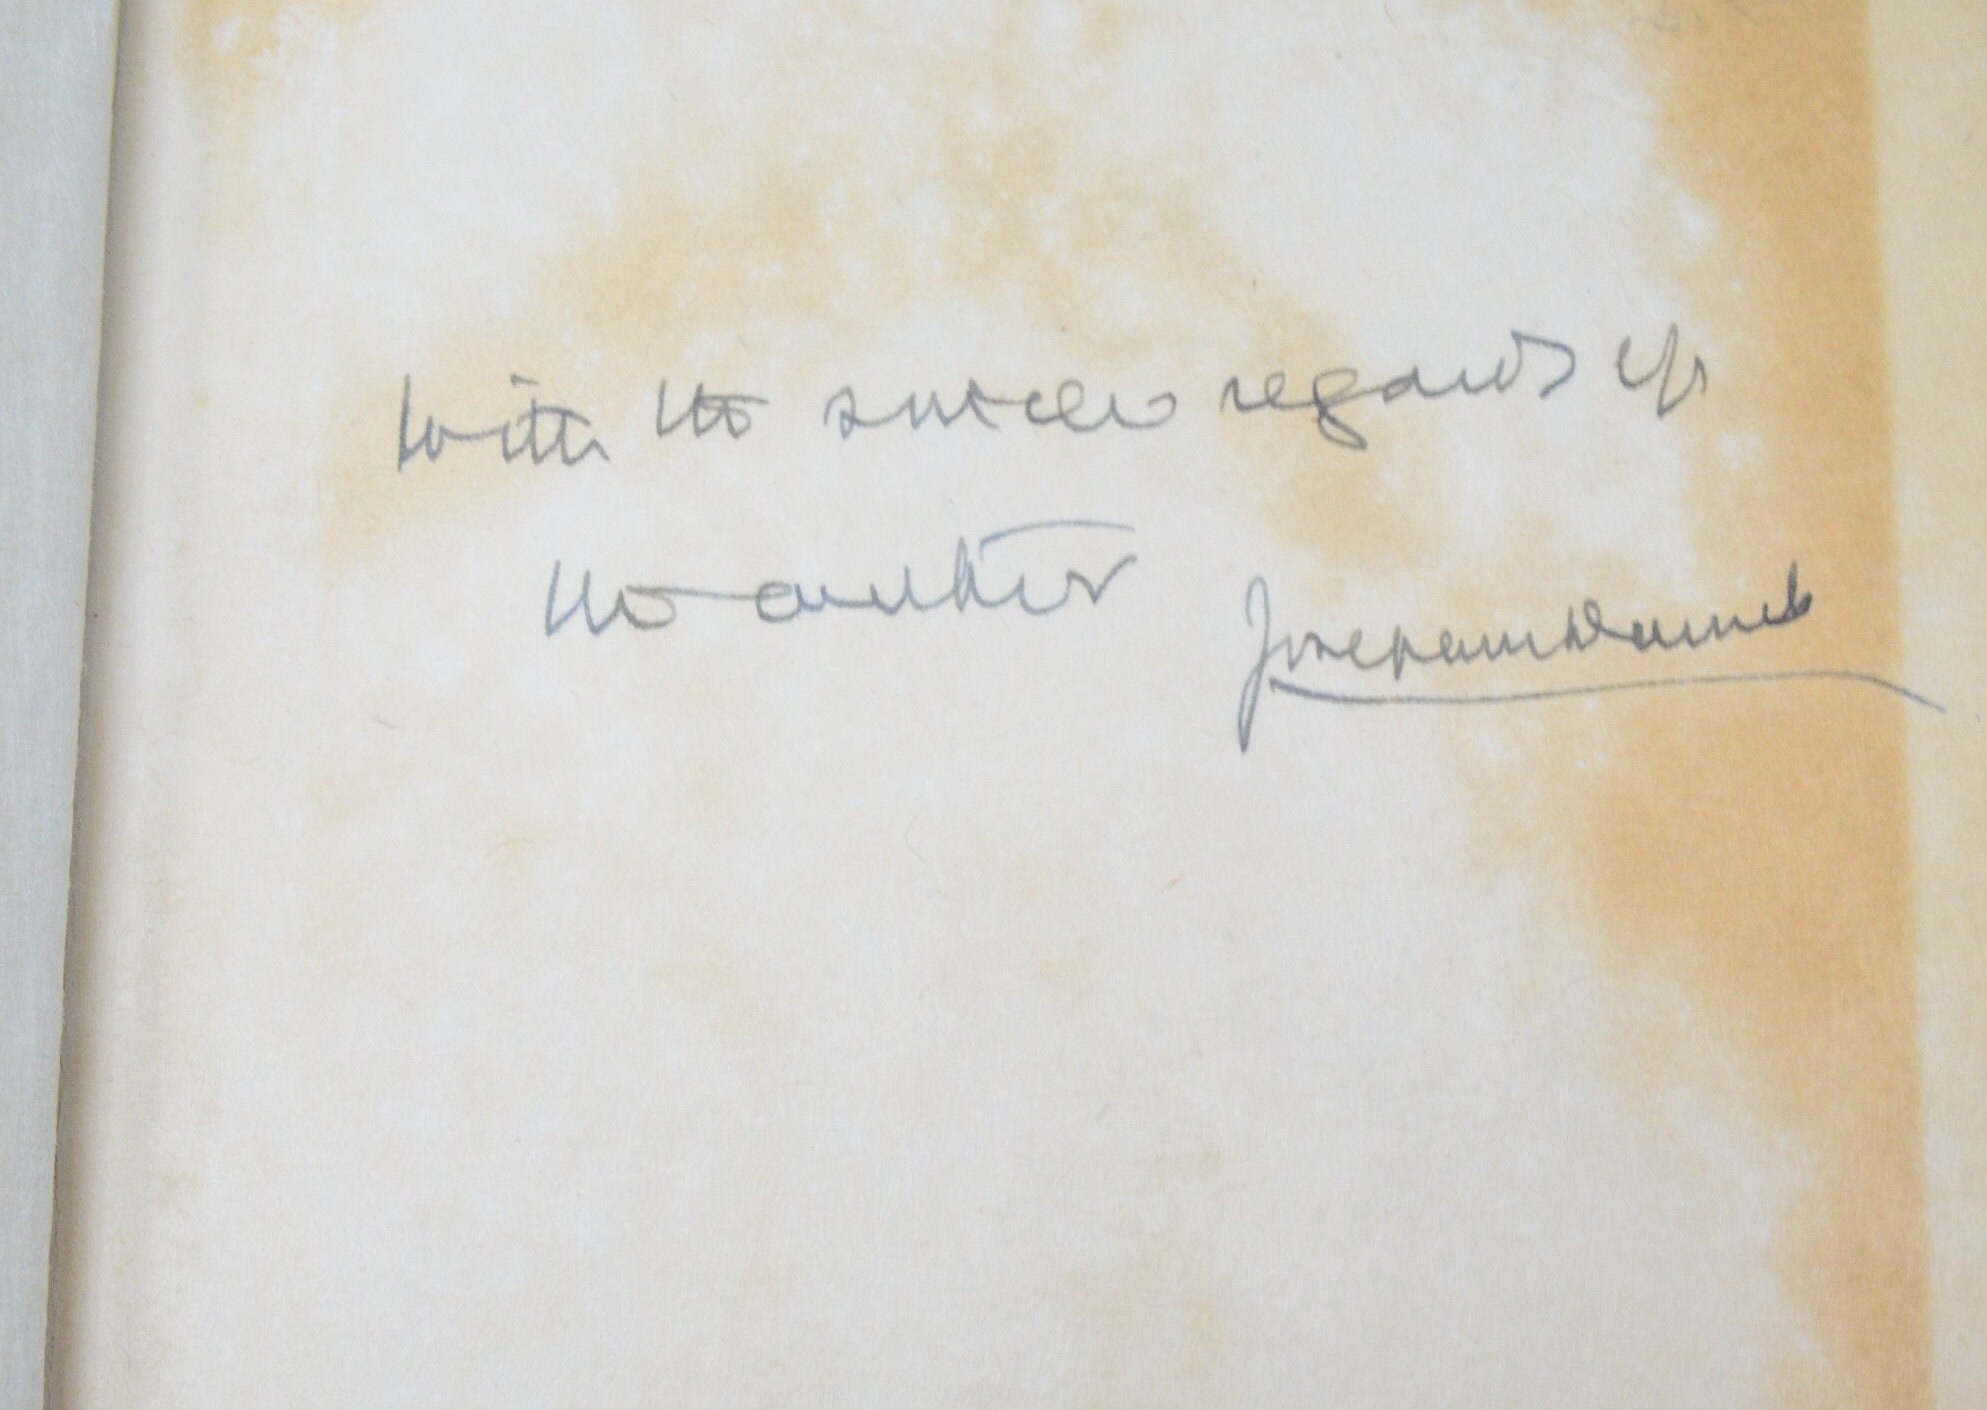 With the sincere regards of
the author Josephus Daniels